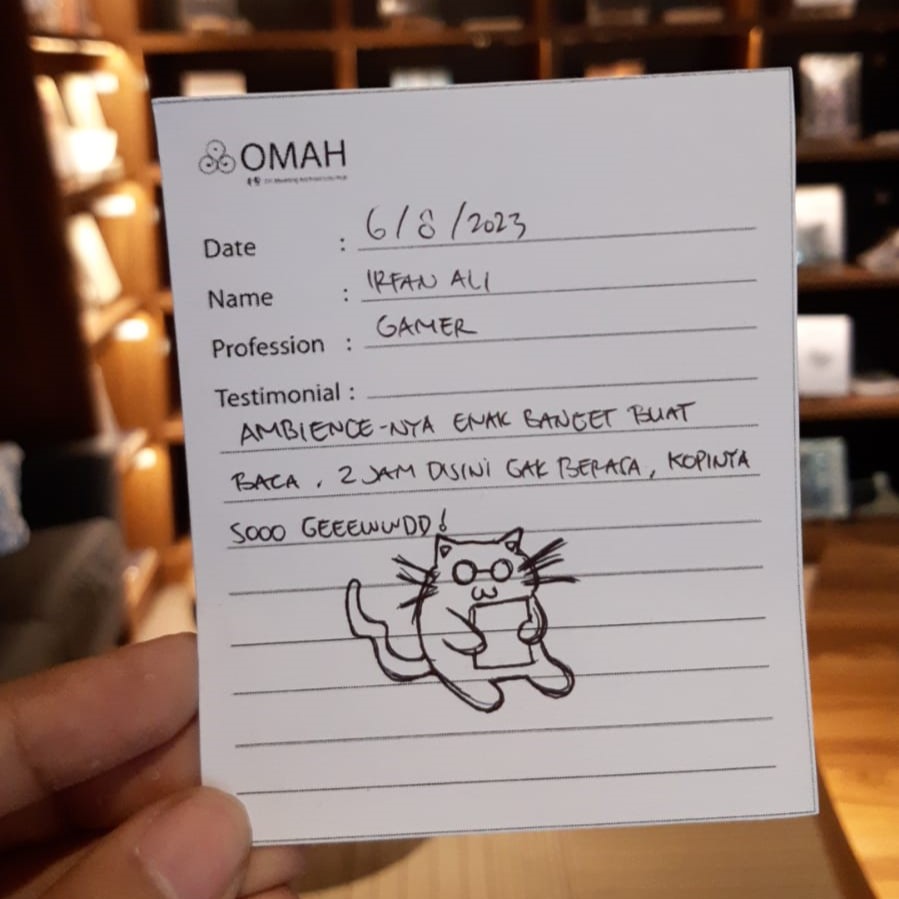 OMAH
Date : 6/8/2023
Name : IRFAN ALI
Profession : GAMER
Testimonial :
AMBIENCE-NYA ENAK BANGET BUAT
BACA, 2 JAM DISINI GAK BERASA, KOPINYA
SOOO GEEEWWDD!